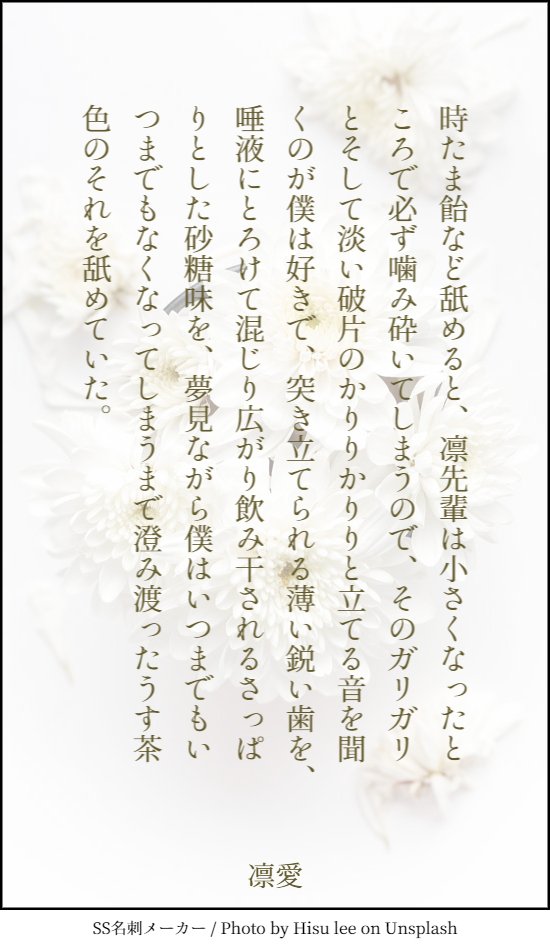 時たま飴など舐めると、凛先輩は小さくなったと
ころで必ず噛み砕いてしまうので、そのガリガリ
とそして淡い破片のかりりかりりと立てる音を聞
くのが僕は好きで、突き立てられる薄い鋭い歯を、
唾液にとろけて混じり広がり飲み干されるさっぱ
りとした砂糖味を、夢見ながら僕はいつまでもい
つまでもなくなってしまうまで澄み渡ったうす茶
色のそれを舐めていた。
凛愛
SS名刺メーカー / Photo by Hisu lee on Unsplash